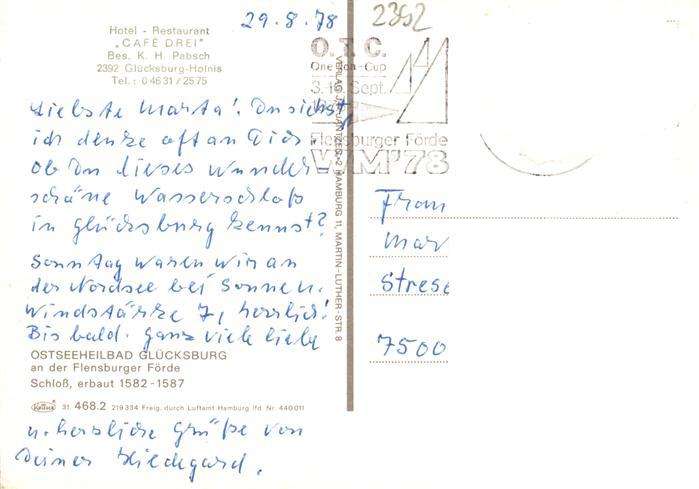 29.8.78
2392
Hotel - Restaurant
„CAFÉ DREI"
Bes. K. H. Pabsch
2392 Glücksburg-Holnis
Tel.: 0 46 31 / 25 75
O. T. C.
One Ton-Cup
Sept.
Flensburger Förde
WM'78
Liebste Marta! Du siehst
ich denke oft an Dich
ob Du dieses wunder
schöne Wasserschloß
in Glücksburg kennst?
Sonntag waren wir an
der Nordsee bei Sonne u.
Windstärke 7, herrlich!
Bis bald. ganz viele liebe
OSTSEEHEILBAD GLÜCKSBURG
an der Flensburger Förde
Schloß, erbaut 1582-1587
31. 468.2 219 334 Freig. durch Luftamt Hamburg lfd Nr. 440 011
u. herzliche Grüße von
Deiner Hildegard.
HAMBURG 11, MARTIN-LUTHER-STR 8
Frau
Mar
Strese
7500